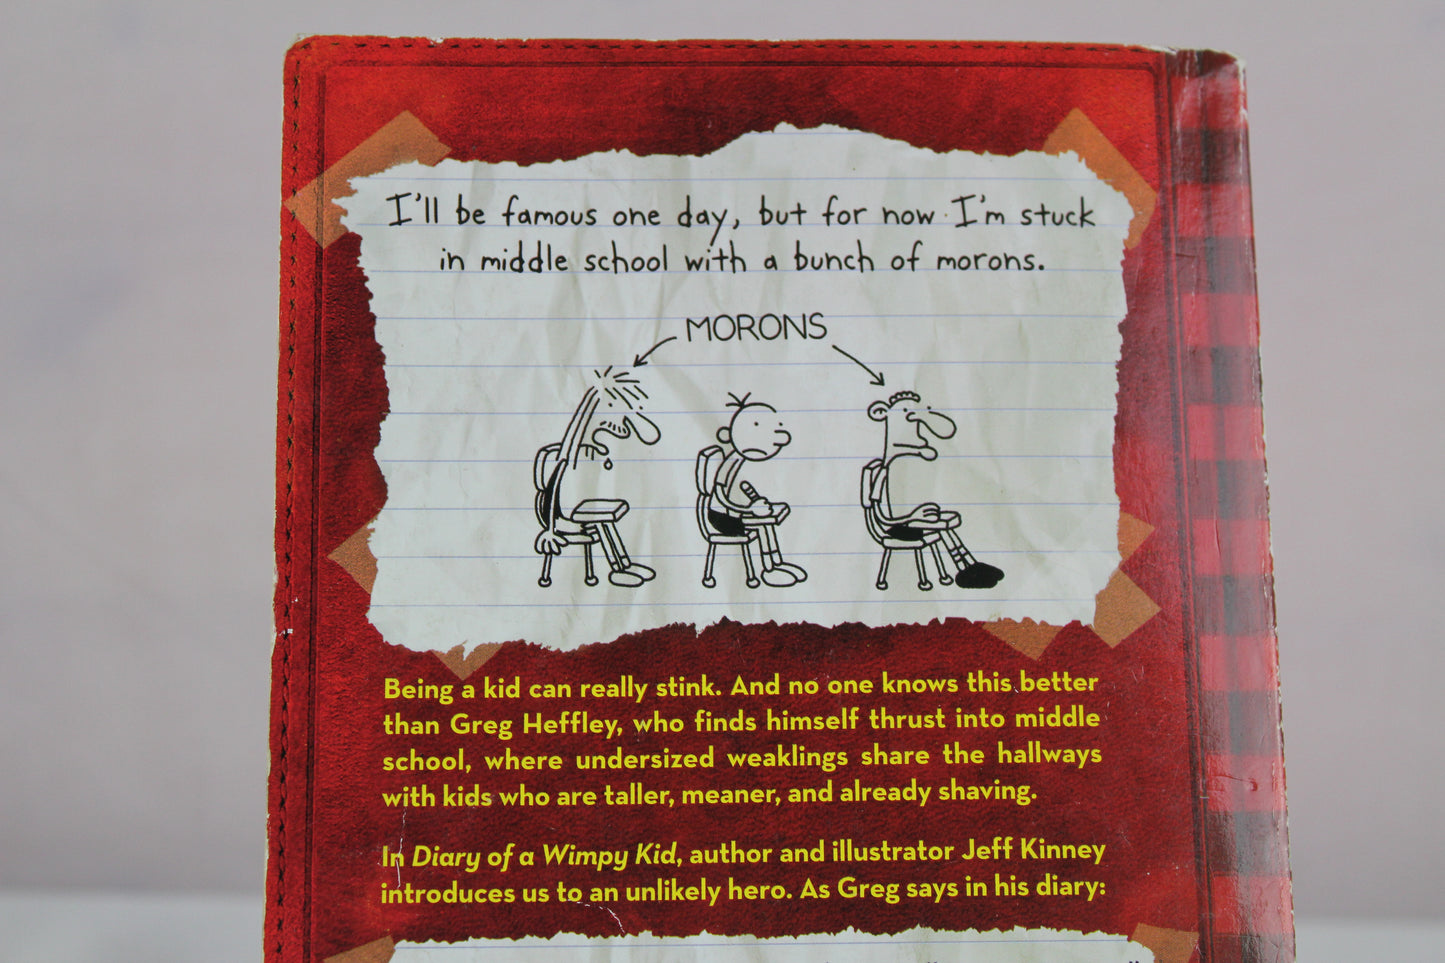 I'll be famous one day, but for now I'm stuck
in middle school with a bunch of morons.
MORONS
Being a kid can really stink. And no one knows this better
than Greg Heffley, who finds himself thrust into middle
school, where undersized weaklings share the hallways
with kids who are taller, meaner, and already shaving.
In Diary of a Wimpy Kid, author and illustrator Jeff Kinney
introduces us to an unlikely hero. As Greg says in his diary: